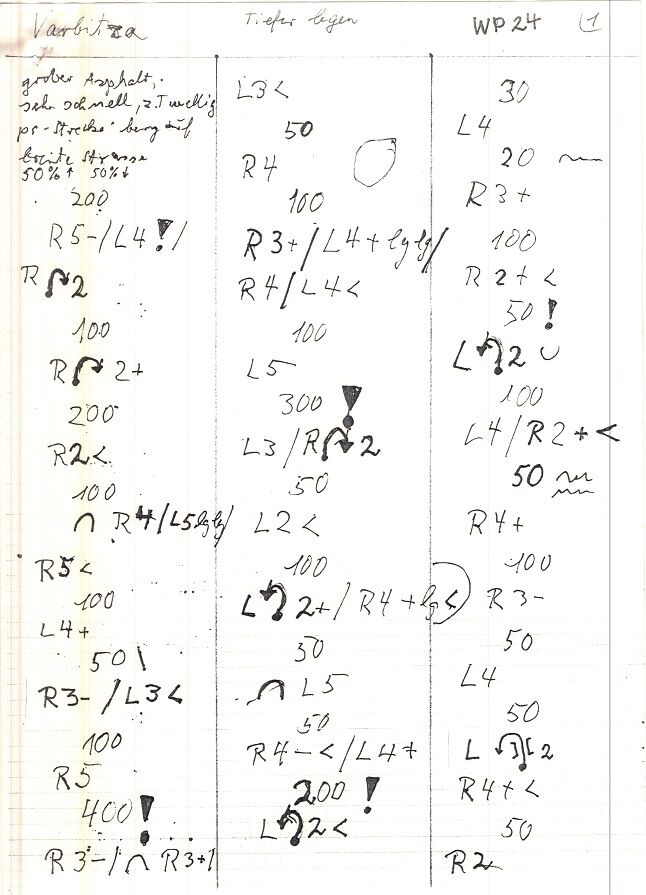 Varbitza
Tiefer legen
WP 24
1
grober Asphalt,
sehr schnell, z.T wellig
ps-Strecke bergauf
breite Strasse
50%↑ 50%↓
200
R5-/L4!/
R 2
100
R 2+
200
R2<
100
∩ R4/L5 lglg/
R5<
100
L4+
50!
R3-/L3<
100
R5
400!
R3-/∩ R3+/
L3<
50
R4
100
R3+/L4+lglg/
R4/L4<
100
L5
300!
L3/R 2
50
L2<
100
L 2+/R4+lg<
50
∩ L5
50
R4-</L4+
200!
L 2<
30
L4
20 ~
R3+
100
R2+<
50!
L 2 ∪
100
L4/R2+<
50 ~
R4+
100
R3-
50
L4
50
L 2
R4+<
50
R2